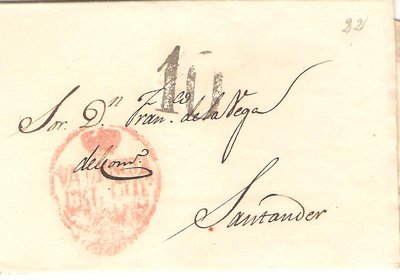 22
10
Sor. Dⁿ Franᶜᵒ. de la Vega
del comº.
Santander